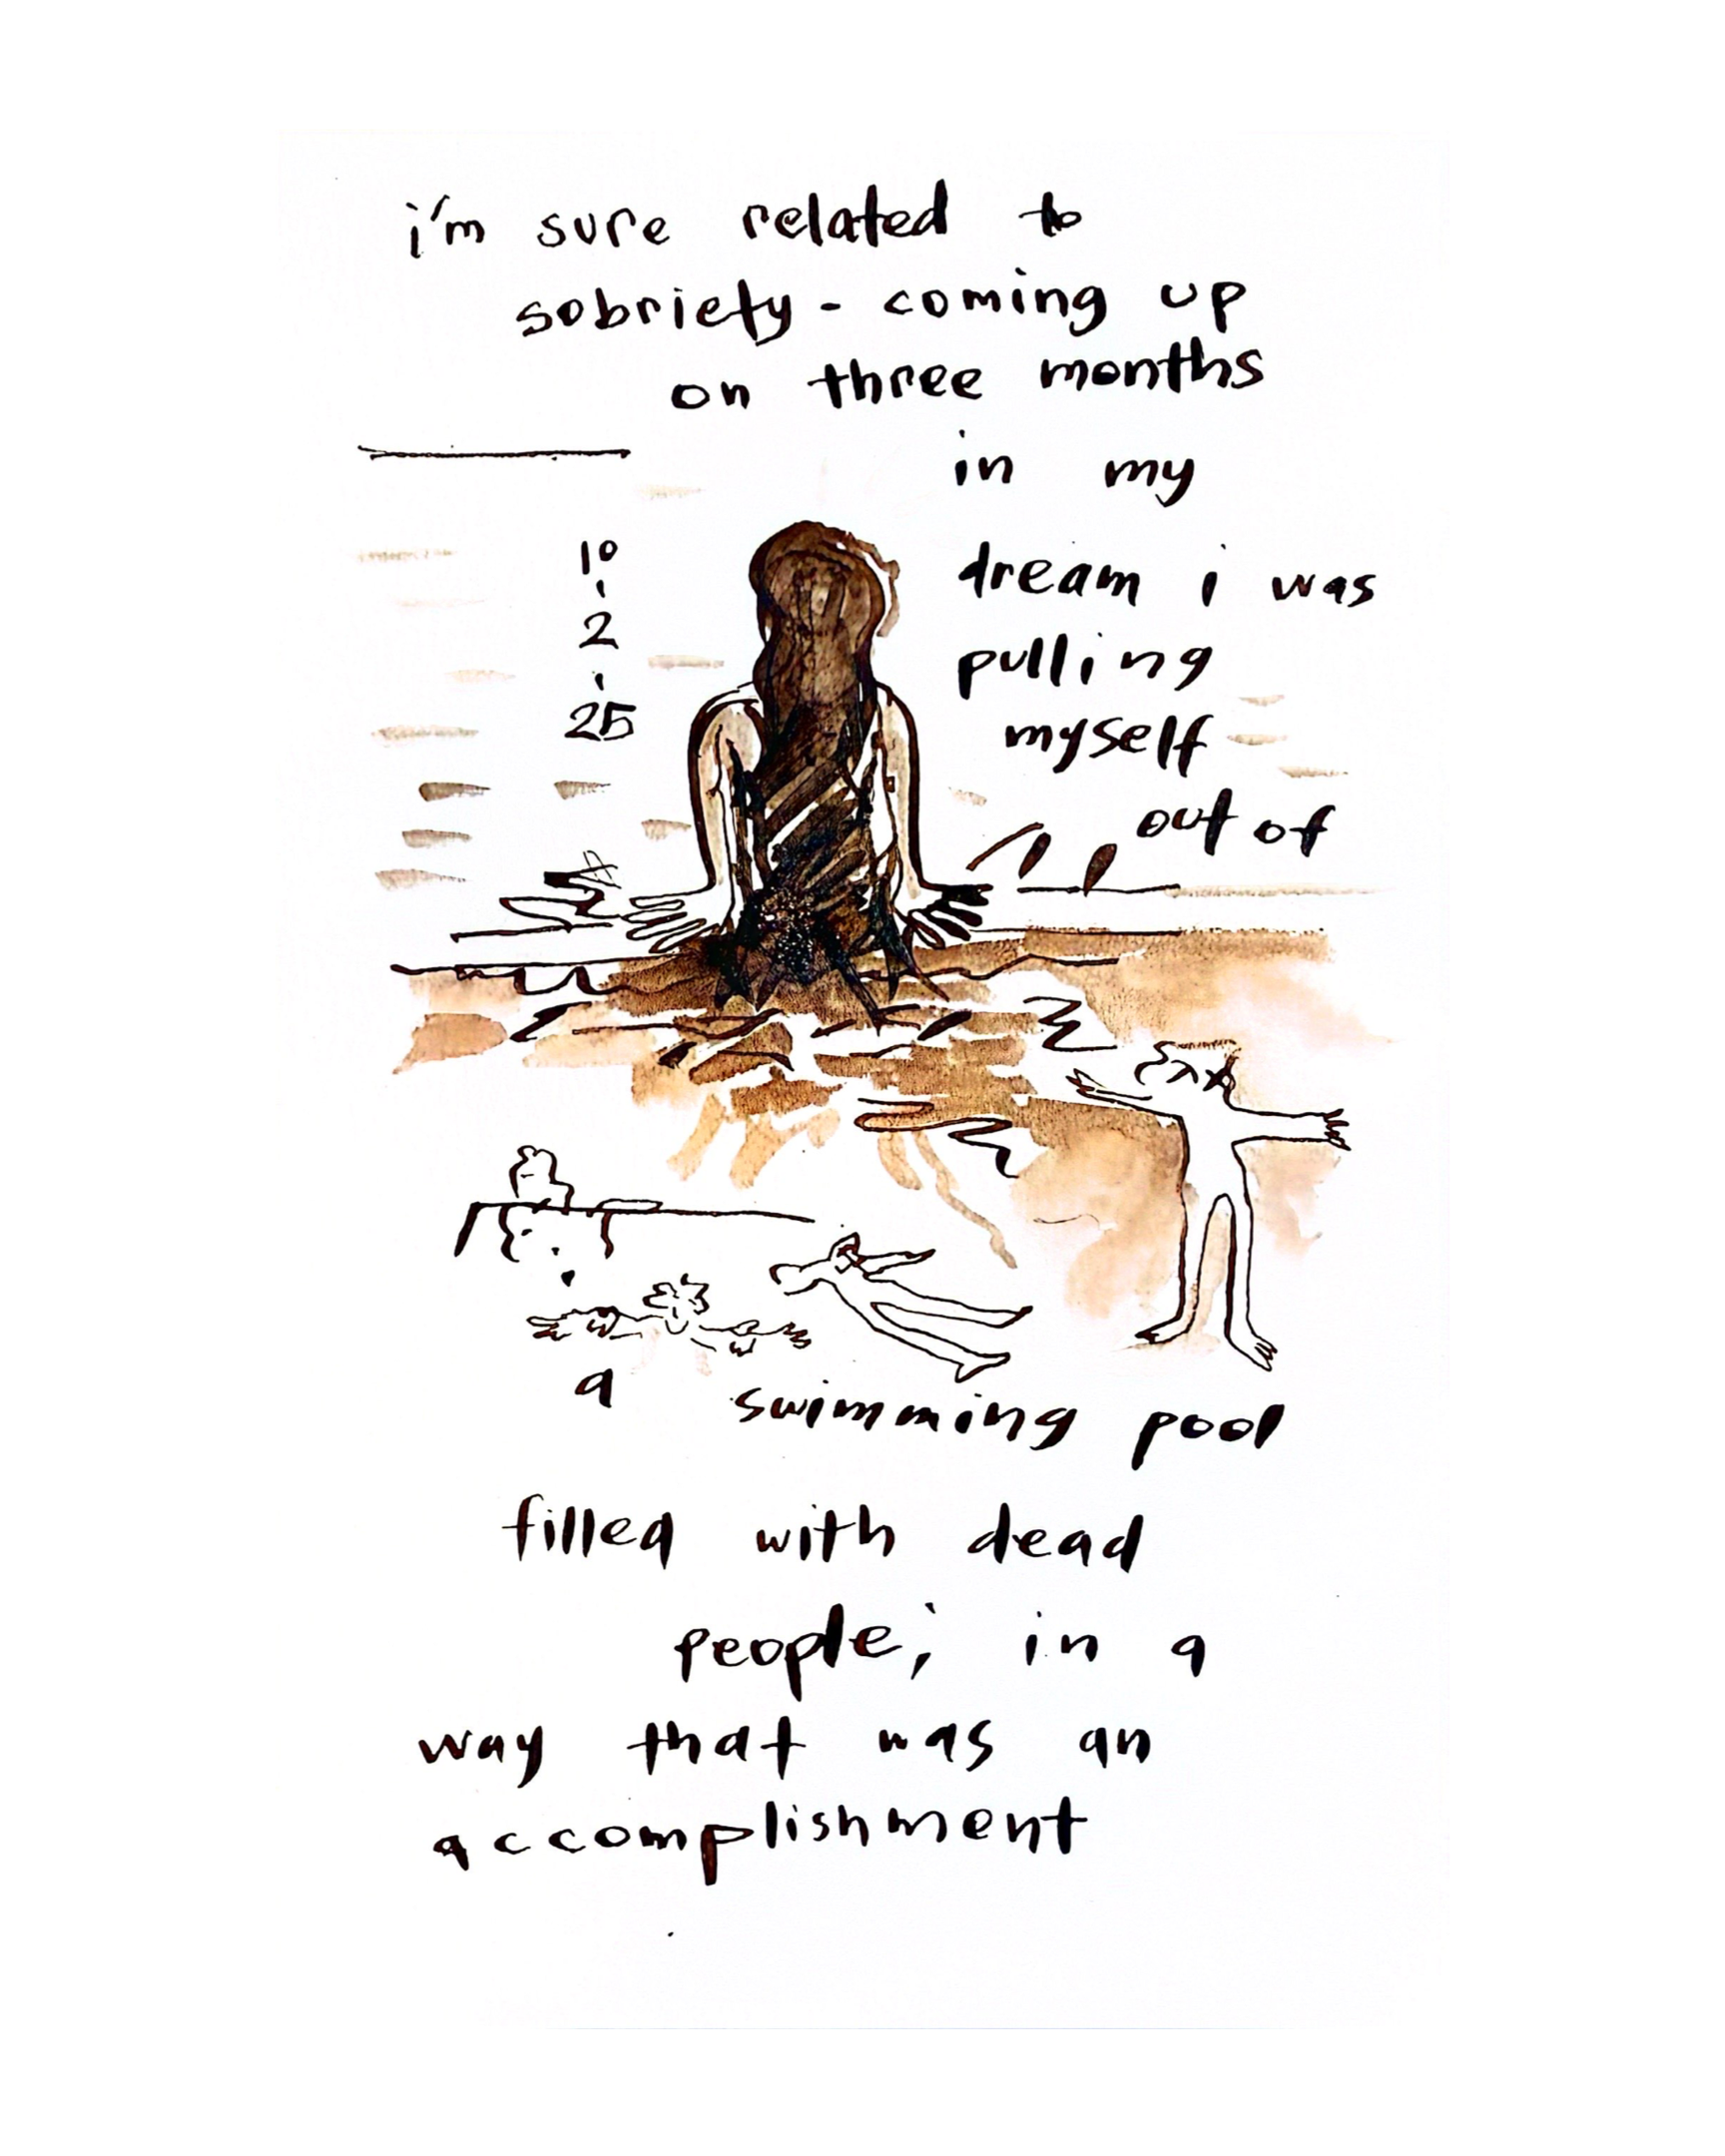 i'm sure related to
sobriety - coming up
on three months
in my
10
dream i was
2
pulling
25
myself
out of
a swimming pool
filled with dead
people; in a
way that was an
accomplishment